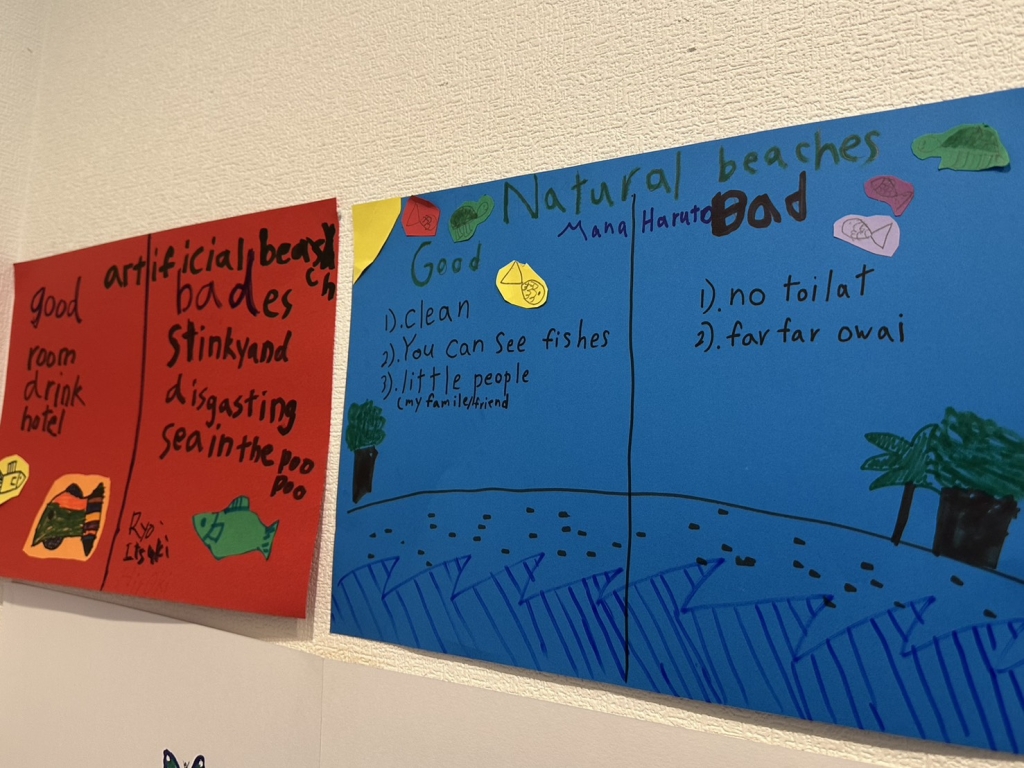 artificial beas
ch
good
room
drink
hotel
bades
stinkyand
disgasting
sea in the poo
poo
Ryo
Itsuki
Natural beaches
Mana Haruto
Good
1).clean
2).You can see fishes
3).little people
(my famile/friend
Bad
1).no toilat
2).far far owai